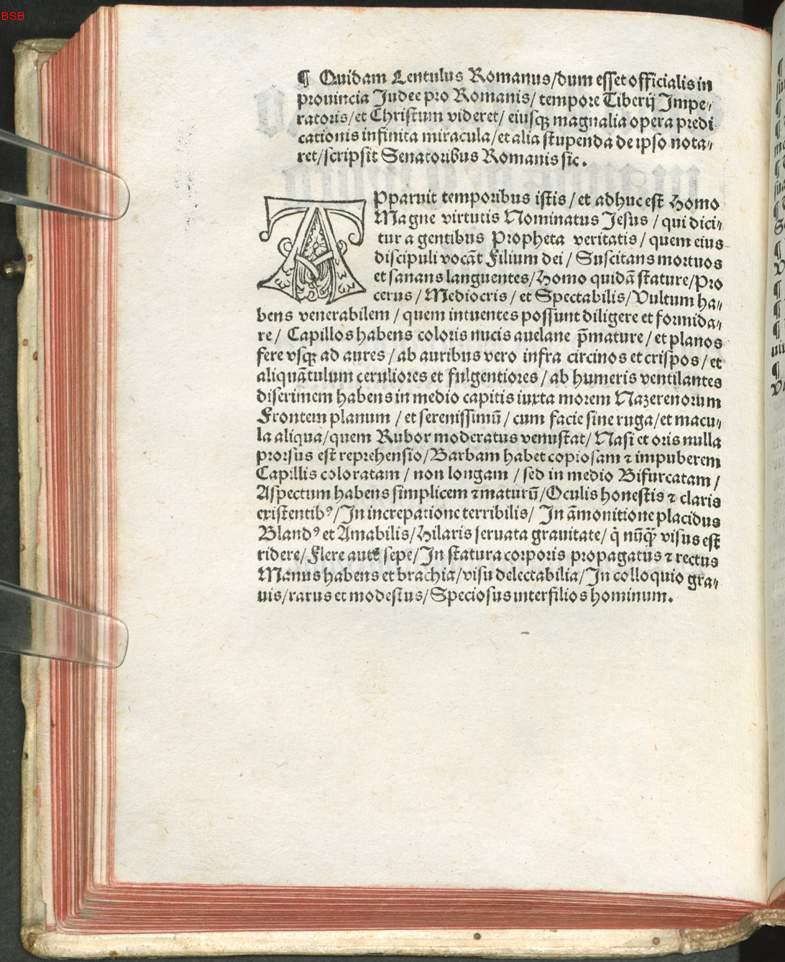 BSB
¶ Quidam Lentulus Romanus/dum esset officialis in
prouincia Judee pro Romanis/ tempore Tiberij Impe/
ratoris/et Christum videret/ eiusqꝫ magnalia opera predi
cationis infinita miracula/et alia stupenda de ipso nota/
ret/scripsit Senatoribus Romanis sic.
APparuit temporibus istis/et adhuc est Homo
Magne virtutis Nominatus Jesus/qui dici/
tur a gentibus Propheta veritatis/quem eius
discipuli vocāt Filium dei/Suscitans mortuos
et sanans languentes/Homo quidā stature/Pro
cerus/Mediocris/et Spectabilis/Vultum ha/
bens venerabilem/quem intuentes possunt diligere et formida/
re/ Capillos habens coloris nucis auelane p̄mature/et planos
fere vsqꝫ ad aures/ab auribus vero infra circinos et crispos/et
aliquātulum ceruliores et fulgentiores/ab humeris ventilantes
discrimem habens in medio capitis iuxta morem Nazerenorum
Frontem planum/et serenissimū/cum facie sine ruga/et macu/
la aliqua/quem Rubor moderatus venustat/Nasi et oris nulla
prorsus est reprehensio/Barbam habet copiosam ⁊ impuberem
Capillis coloratam/non longam/sed in medio Bifurcatam/
Aspectum habens simplicem ⁊ maturū/Oculis honestis ⁊ claris
existentibꝰ/In increpatione terribilis/In āmonitione placidus
Blandꝰ et Amabilis/Hilaris seruata grauitate/q̄ nūq̄ visus est
ridere/Flere autē sepe/In statura corporis propagatus ⁊ rectus
Manus habens et brachia/visu delectabilia/In colloquio gra/
uis/rarus et modestus/Speciosus inter filios hominum.